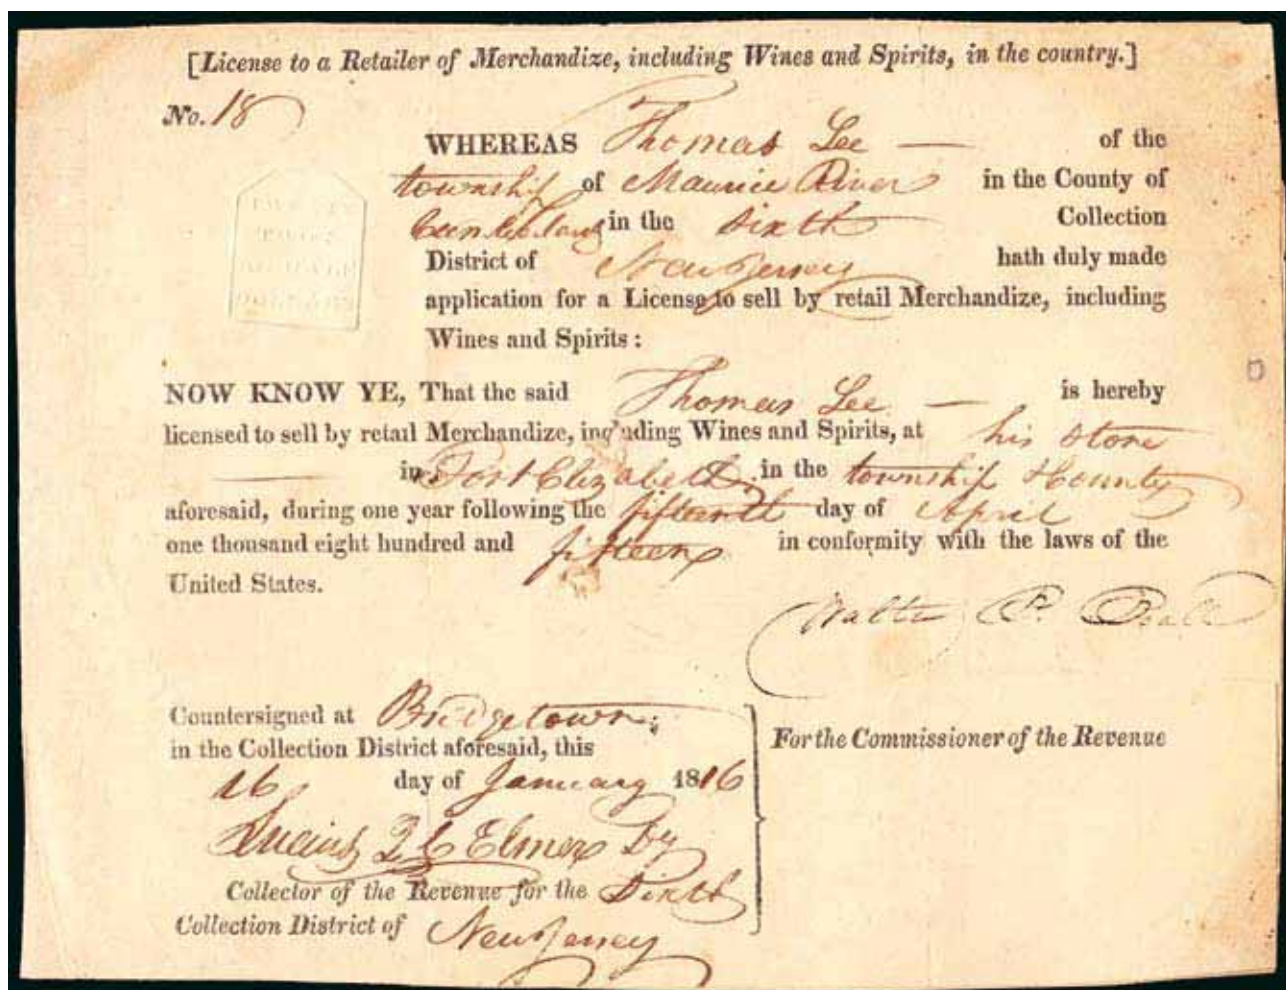 [License to a Retailer of Merchandize, including Wines and Spirits, in the country.]
No. 18
WHEREAS Thomas Lee — of the
township of Maurice River in the County of
Cumberland in the sixth Collection
District of New Jersey hath duly made
application for a License to sell by retail Merchandize, including
Wines and Spirits:
NOW KNOW YE, That the said Thomas Lee — is hereby
licensed to sell by retail Merchandize, including Wines and Spirits, at his store
— in Port Elizabeth in the township & County
aforesaid, during one year following the fifteenth day of April
one thousand eight hundred and fifteen in conformity with the laws of the
United States.
Walter
Countersigned at Bridgetown
in the Collection District aforesaid, this
16 day of January 1816
Lucius Q C Elmer Dy
Collector of the Revenue for the Sixth
Collection District of New Jersey
For the Commissioner of the Revenue